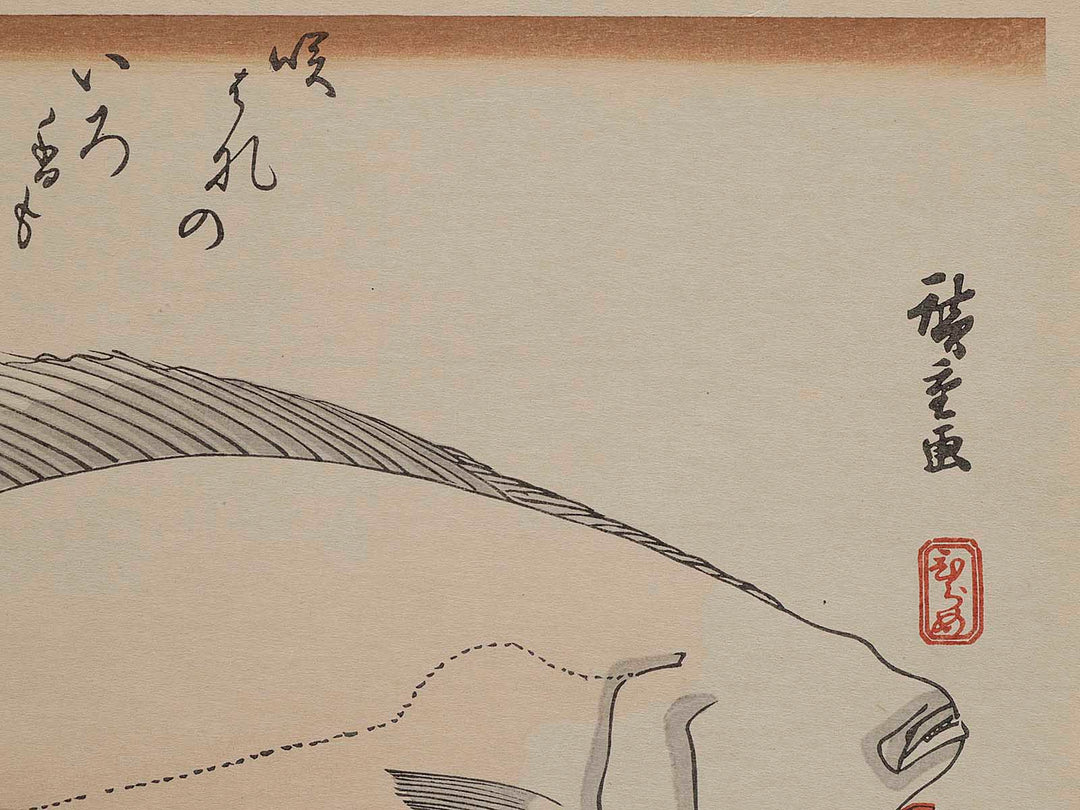 咲
はなの
いろ
香も
廣重画